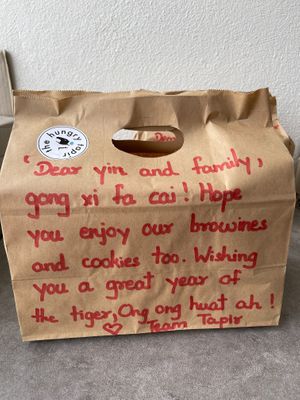 the hungry tapir
"Dear yin and family,
gong xi fa cai! Hope
you enjoy our browines
and cookies too. Wishing
you a great year of
the tiger, Ong ong huat ah!
♡ Team Tapir
Dear